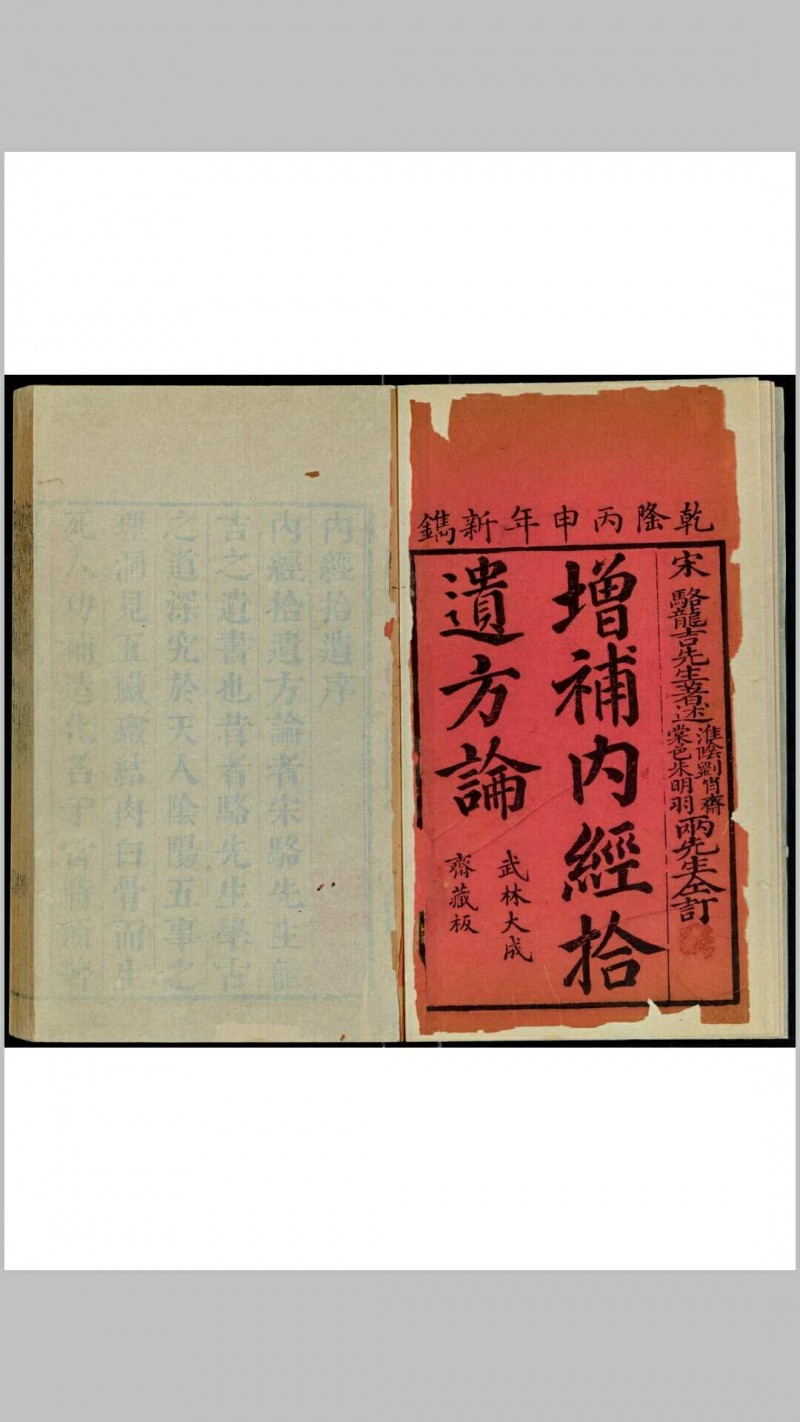 乾隆丙申年新鐫
宋駱龍吉先生著述淮陰劉肖齋棠邑朱明羽兩先生仝訂
增補內經拾
遺方論
武林大成
齋藏板
內經拾遺序
內經拾遺方論者宋駱先生龍
吉之遺書也昔者駱先生學古
之道深究於天人陰陽五事之
理洞見五臟癥結肉白骨而生
死人功